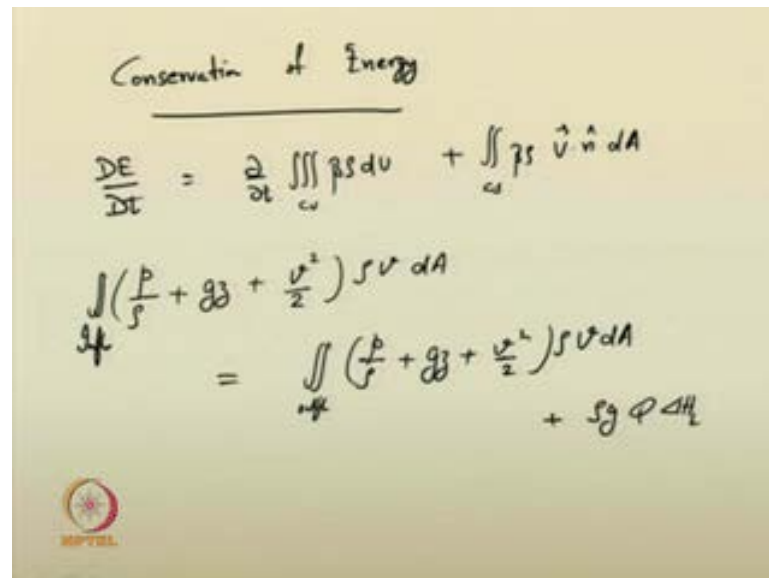 Conservation of Energy
DE/Dt = ∂/∂t ∭cv βρ dv + ∬cs βρ v̂·n̂ dA
∬Infl (p/ρ + gz + v²/2) ρ v dA
= ∬outfl (p/ρ + gz + v²/2) ρ v dA
+ ρg Q ΔH_L
NPTEL